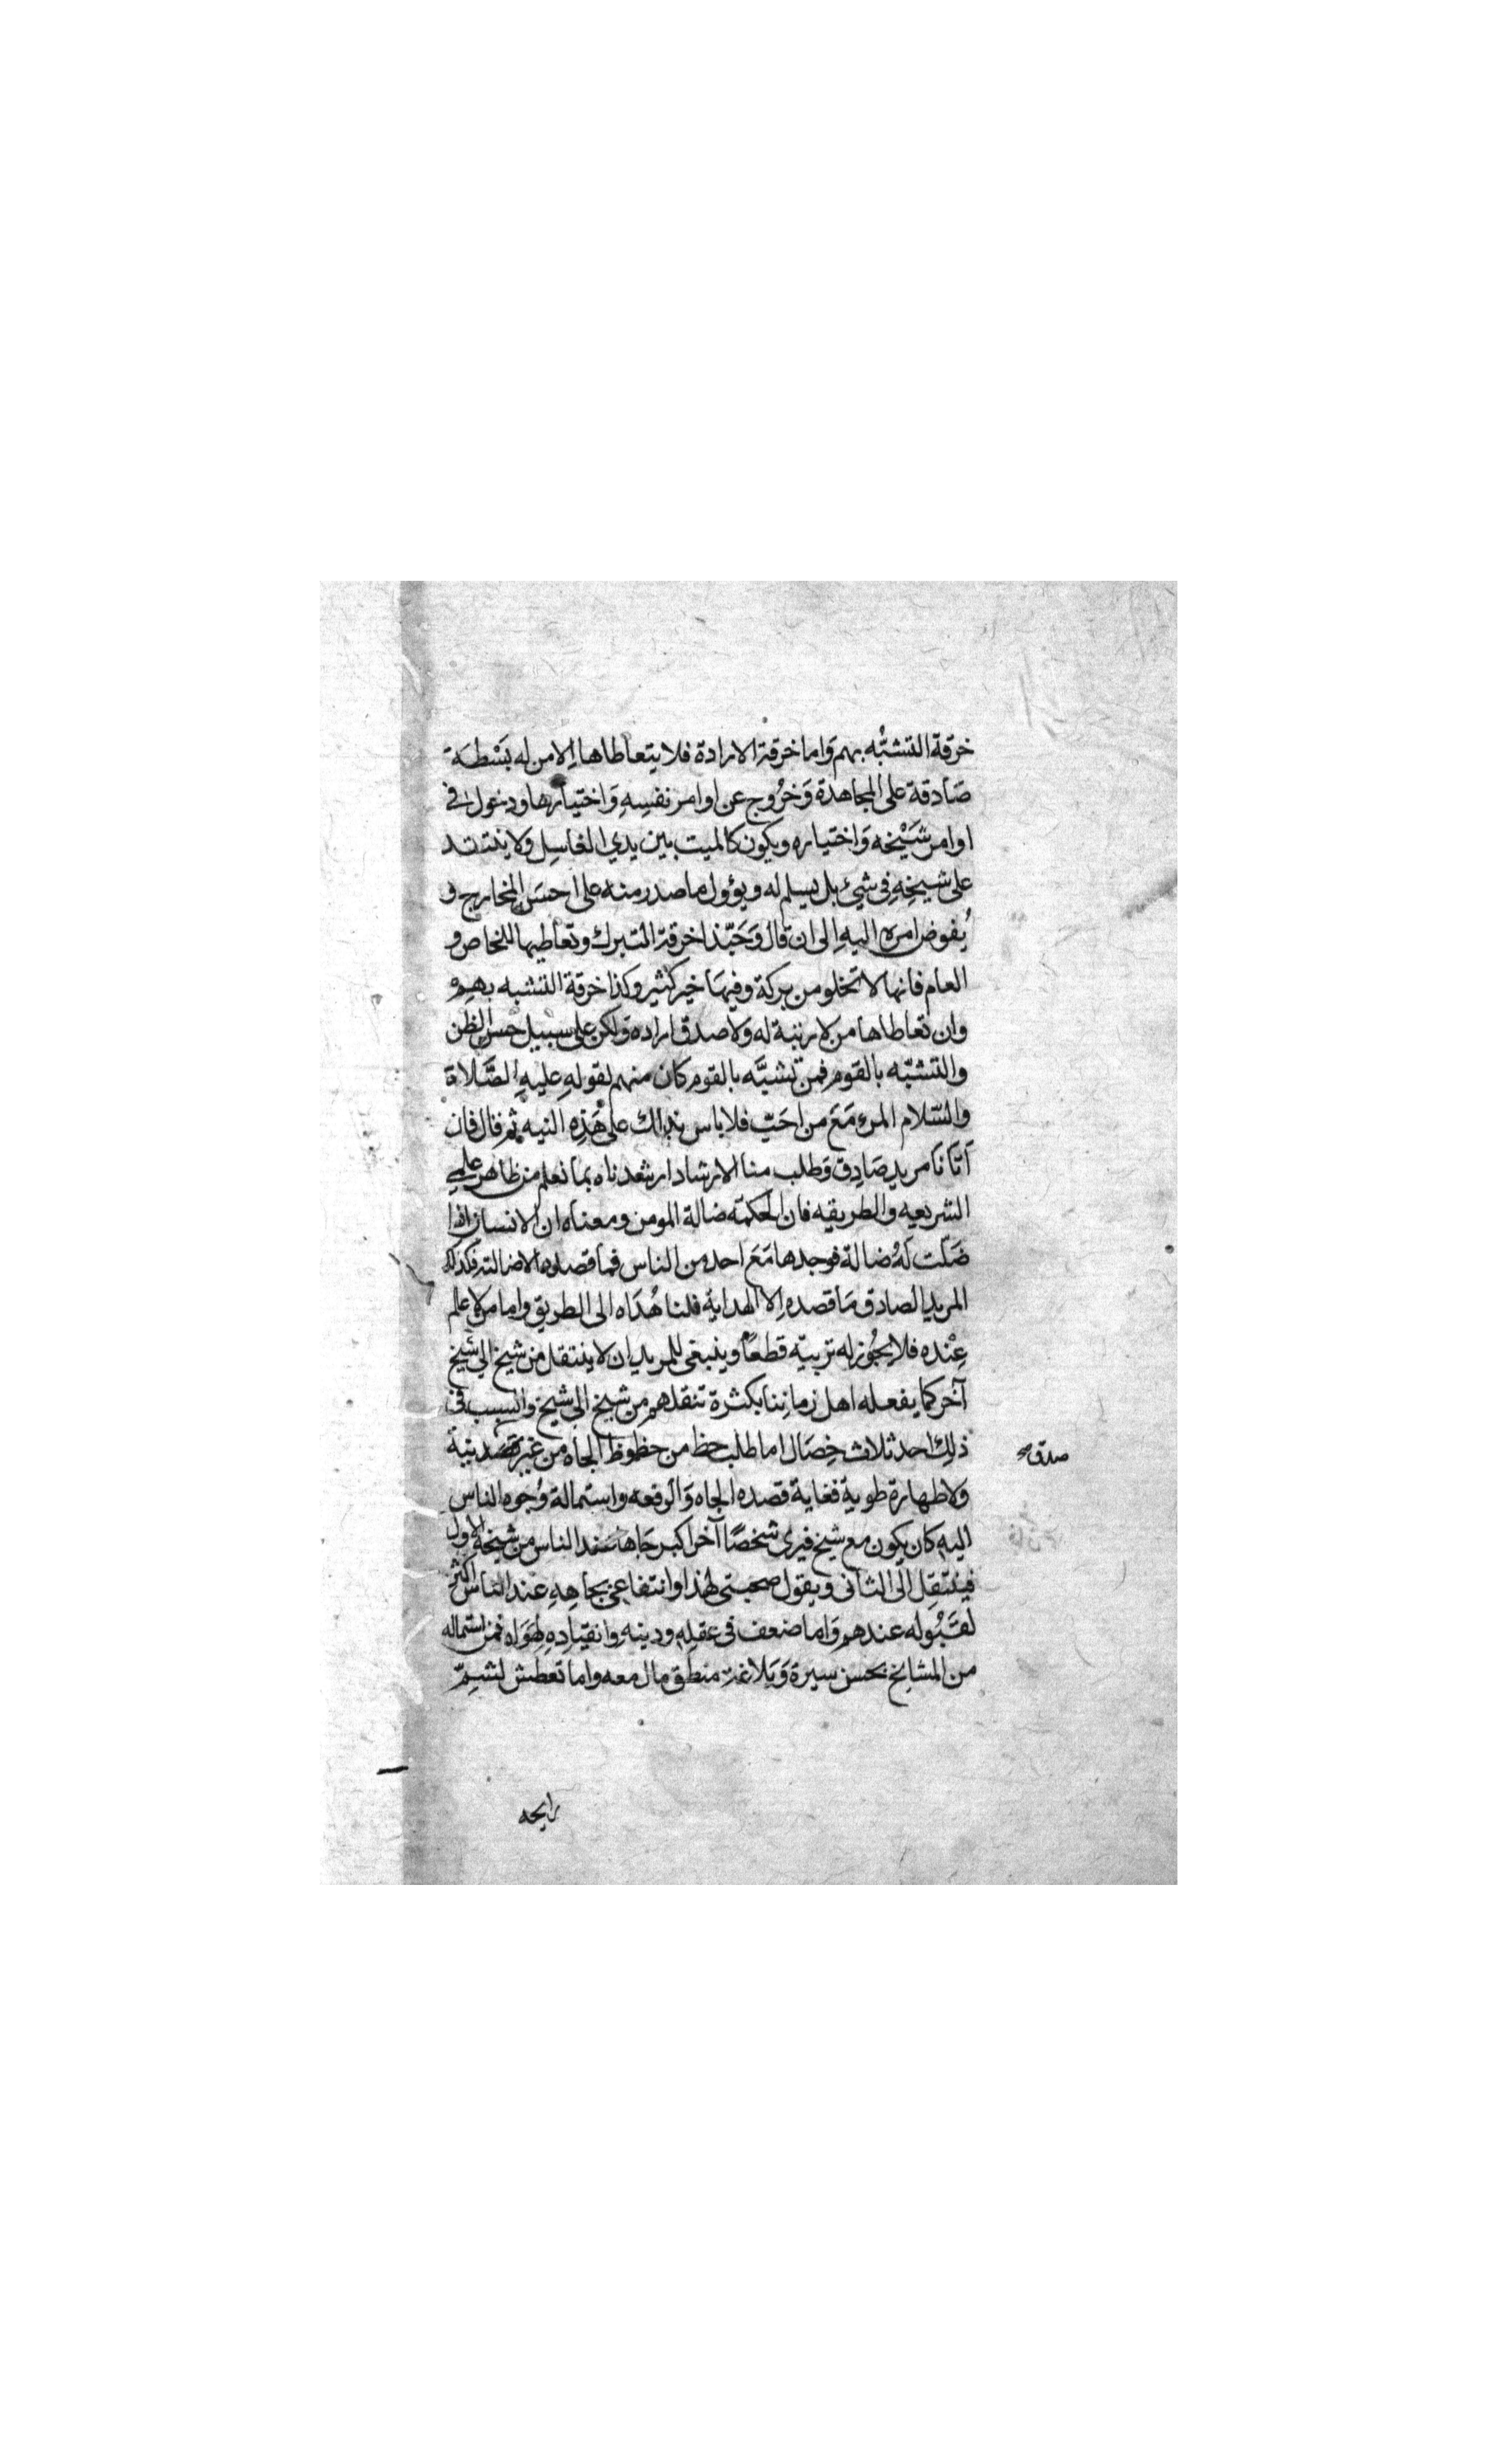 خرقة التشبّه بهم وَاما خرقة الارادة فلا يتعاطاها اِلا من له بَسْطة
صَادقة على المجاهدة وَخرُوج عن اوامر نفسِهِ وَاختيارها ودخول في
اوامر شَيْخه وَاختياره ويكون كالميت بين يدي الغاسِل ولا ينتقد
على شيخِهِ في شيئ بل يسلم له ويؤول ما صدر منه على احسَن المخارج و
يُفوض امره اليهِ الى ان قال وَحَبّذا خرقة التبرك وتعاطيها للخاص و
العام فانها لا تخلو من بركة وفيهَا خير كثير وكذا خرقة التشبه بهم
وان تعاطاها من لا رتبة له ولا صدق اراده ولكن على سبيل حسن الظن
والتشبّه بالقوم فمن تشبَّه بالقوم كان منهم لقولهِ عليهِ الصَّلاة
والسّلام المرء مَعَ من احَبّ فلا باس بذلك على هَذِه النيه ثم قال فان
اَتَانَا مريد صَادِق وَطلب منا الارشاد ارشدناه بما نعلم من ظاهر علمي
الشريعه والطريقه فان الحكمة ضالة المومن ومعناه ان الانسان اذا
ضَلّت لَهُ ضالة فوجدها مَعَ احد من الناس فما قصده الا ضالته فكذلك
المريد الصادق مَا قصده اِلا الهداية فلنا هُدَاه الى الطريق واما من لا علم
عِنْده فلا يجُوز له تربيّه قطعًا وينبغى للمريد ان لا ينتقل من شيخ الى شيخ
آخر كما يفعله اهل زمانِنا بكثرة تنقلهم من شيخ الى شيخ والسبب في
ذلِك احد ثلاث خِصَال اما طلب حظ من حظوظ الجاه من غير قصد نية
صدق صح
ولا طهارة طوية فغاية قصده الجاه وَالرفعه واستمالة وُجوه الناس
اليهِ كان يكون مع شيخ فيرى شخصًا آخر اكبر جَاها عند الناس من شيخه الاول
فينتقِل الى الثانى ويقول صحبتى لهذا وانتفاعى بجاهِهِ عند الناس اكثر
لقَبُوله عندهم وَاما ضعف في عقلِهِ ودينهِ وانقيادِهِ لهَوَاه فمن استماله
من المشايخ بحسن سيرة وَبَلاغة منطق مال معه واما تعطش لشَمِّ
رايحه